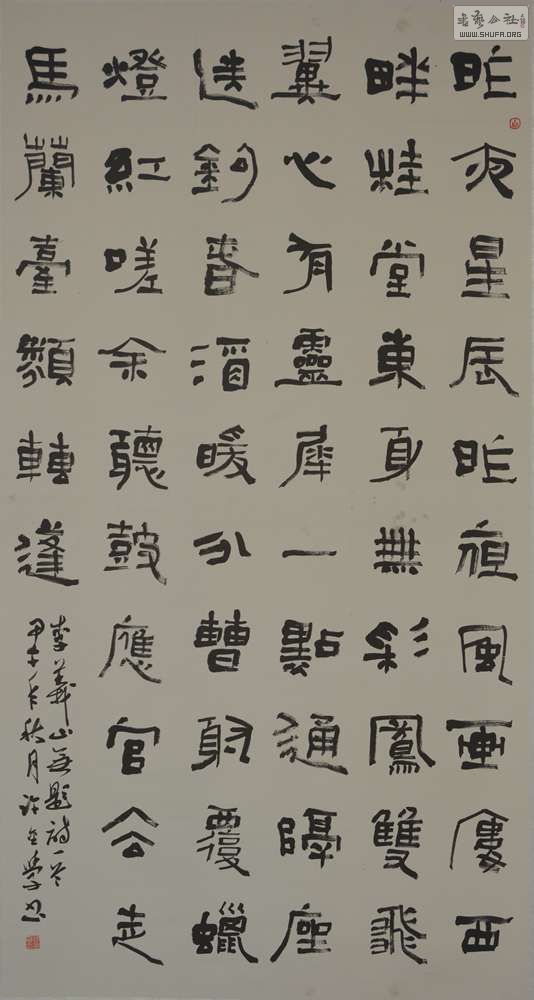 昨夜星辰昨夜風画廔西
畔桂堂東身無彩鳳雙飛
翼心有靈犀一點通隔座
送鉤春酒暖分曹射覆蠟
燈紅嗟余聽鼓應官去走
馬蘭臺類轉蓬
李義山無題詩一首
甲午年秋月
WWW.SHUFA.ORG